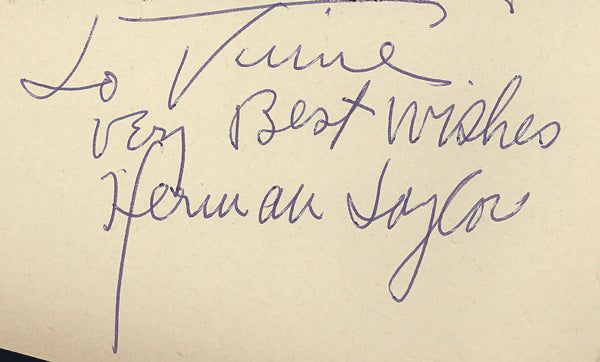 To
Very Best Wishes
Herman Taylor